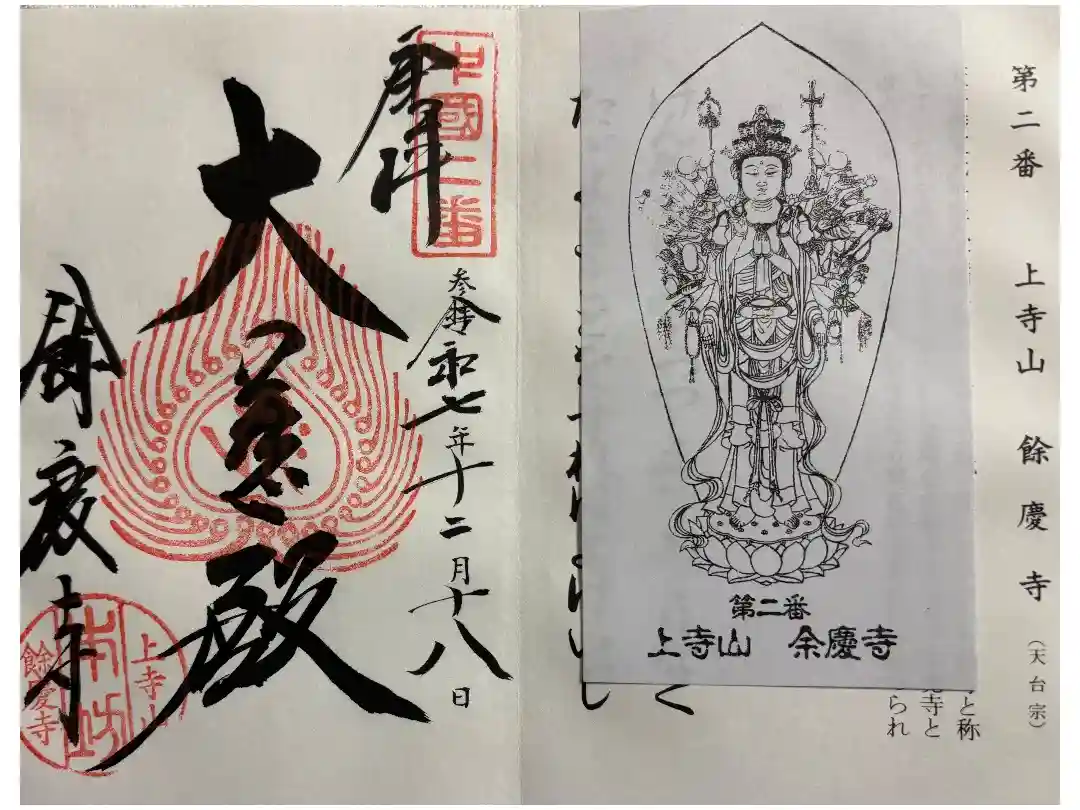 第二番 上寺山 餘慶寺 (天台宗)
と称
寺と
られ
第二番
上寺山 余慶寺
中國二番
奉拝
参拝 令和七年十二月十八日
大悲殿
餘慶寺
上寺山
本坊
餘慶寺